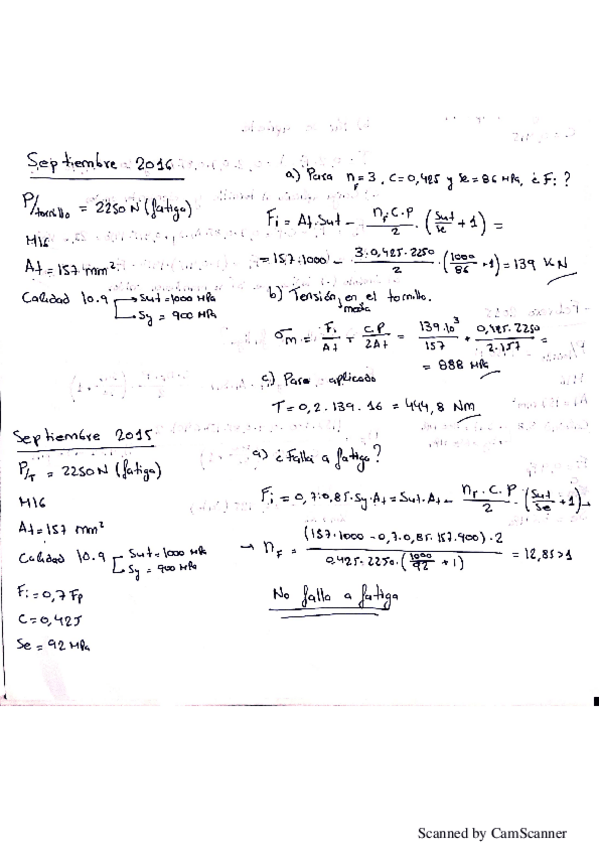 Septiembre 2016
P/tornillo = 2250 N (fatiga)
M16
At = 157 mm²
Calidad 10.9 → Sut = 1000 MPa
→ Sy = 900 MPa
a) Para nF = 3, C = 0,425 y Se = 86 MPa, ¿Fi?
Fi = At·Sut - nF·C·P/2 · (Sut/Se + 1) =
= 157·1000 - 3·0,425·2250/2 · (1000/86 + 1) = 139 KN
b) Tensión media en el tornillo.
σm = Fi/At + CP/2At = 139·10³/157 + 0,425·2250/2·157 =
= 888 MPa
c) Para aplicado
T = 0,2·139·16 = 444,8 Nm
Septiembre 2015
P/T = 2250 N (fatiga)
M16
At = 157 mm²
Calidad 10.9 → Sut = 1000 MPa
→ Sy = 900 MPa
Fi = 0,7 Fp
C = 0,425
Se = 92 MPa
a) ¿Falla a fatiga?
Fi = 0,7·0,85·Sy·At = Sut·At - nF·C·P/2 · (Sut/Se + 1) →
→ nF = (157·1000 - 0,7·0,85·157·900)·2 / 0,425·2250·(1000/92 + 1) = 12,85 > 1
No falla a fatiga
Scanned by CamScanner